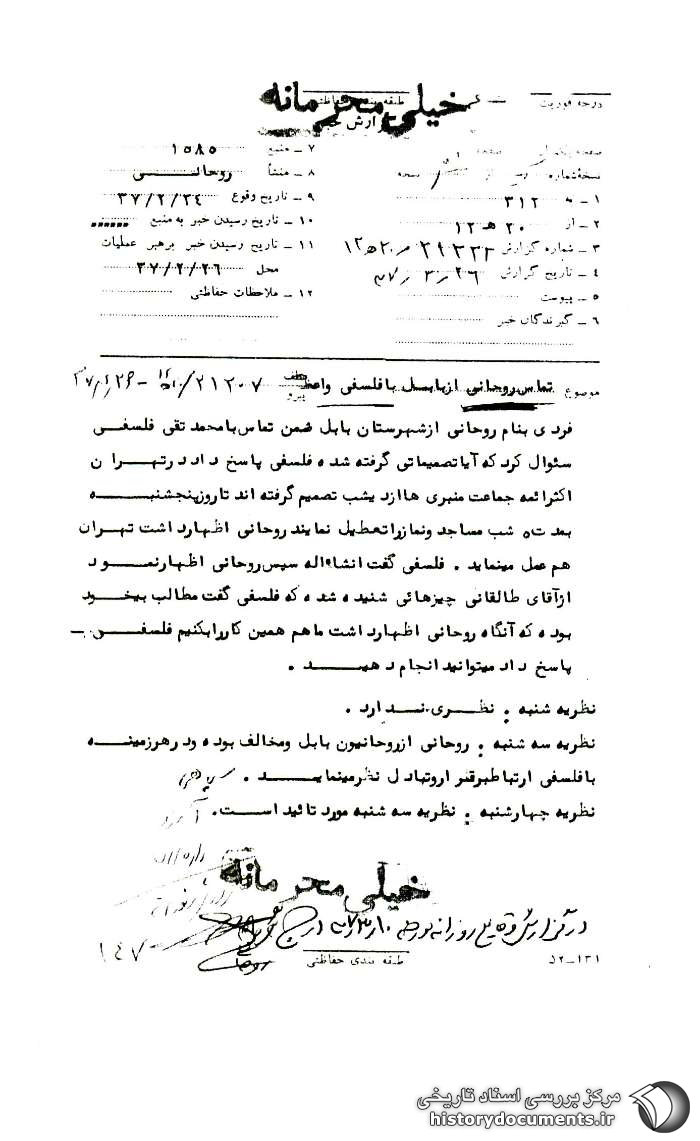 درجه فوریت
خیلی محرمانه
طبقه بندی حفاظتی
صفحه یک از
نسخه شماره از نسخه
۱ ـ به ۳۱۲
۲ ـ از ۲۰ هـ ۱۲
۳ ـ شماره گزارش ۲۹۳۳۲
۴ ـ تاریخ گزارش ۲۶ / ۳ / ۳۷
۵ ـ پیوست
۶ ـ گیرندگان خبر
۷ ـ منبع ۱۵۸۵
۸ ـ منشأ روحانـــی
۹ ـ تاریخ وقوع ۳۷/۲/۲۴
۱۰ ـ تاریخ رسیدن خبر به منبع
۱۱ ـ تاریخ رسیدن خبر برهبر عملیات
محل ۳۷/۲/۲۶
۱۲ ـ ملاحظات حفاظتی
موضوع تماس روحانی از بابـل با فلسفی واعظ عطف پیرو ۲۱۲۰۷
فردی بنام روحانی از شهرستان بابل ضمن تماس با محمد تقی فلسفـی
سئوال کرد که آیا تصمیماتی گرفته شده فلسفی پاسخ داد در تهـران
اکثر ائمه جماعت منبری ها از دیشب تصمیم گرفته اند تا روز پنجشنبـــه
بمدت ۵ شب مساجد و نماز را تعطیل نمایند روحانی اظهار داشت تهـران
هم عمل مینماید . فلسفی گفت انشاءاله سپس روحانی اظهار نمـــود
از آقای طالقانی چیزهائی شنیده شده که فلسفی گفت مطالب بیخـود
بوده که آنگاه روحانی اظهار داشت ما هم همین کار را بکنیم فلسفـــی ـ
پاسخ داد میتوانید انجام دهیـــد .
نظریه شنبه . نظـــری نـــدارد .
نظریه سه شنبه . روحانی از روحانیون بابل و مخالف بوده و در هر زمینــه
با فلسفی ارتباط برقرار و تبادل نظر مینمایــــد .
نظریه چهارشنبه . نظریه سه شنبه مورد تائید اســت.
خیلی محرمانه
در گزارش وقایع روزانه مورخه درج
طبقه بندی حفاظتی
۱۴۷
۵۲-۱۳۱
مرکز بررسی اسناد تاریخی
historydocuments.ir